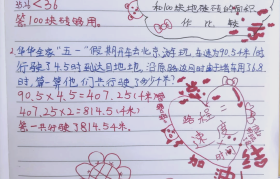 <36
第100块砖够用。
和100块地砖的面积
作比较
2.华华全家“五一”假期开车去北京游玩,车速为90.5千米/时
行驶了4.5时到达目地地,沿原路返回时由于堵车用了6.8
时,算一算他们共行驶了多少千米?
90.5×4.5=407.25(千米)
407.25×2=814.5(千米)
答:一共行驶了814.5千米.
路程=
速度×
时
加油